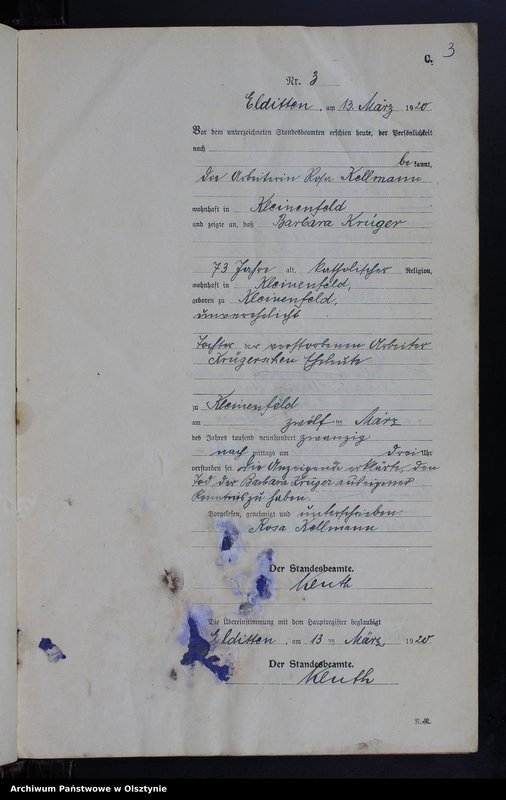 3
C.
Nr. 3
Elditten, am 13. März 1920
Vor dem unterzeichneten Standesbeamten erschien heute, der Persönlichkeit
nach
be kannt,
die Arbeiterin Rosa Kellmann
wohnhaft in Kleinenfeld
und zeigte an, daß Barbara Krüger
73 Jahre alt, katholischer Religion,
wohnhaft in Kleinenfeld,
geboren zu Kleinenfeld,
unverehelicht
Tochter der verstorbenen Arbeiter
Krügerschen Eheleute
zu Kleinenfeld
am zwölf ten März
des Jahres tausend neunhundert zwanzig
nach mittags um drei Uhr
verstorben sei. Die Anzeigende erklärte, den
Tod der Barbara Krüger aus eigener
Kenntnis zu haben.
Vorgelesen, genehmigt und unterschrieben.
Rosa Kellmann
Der Standesbeamte.
Die Übereinstimmung mit dem Hauptregister beglaubigt
Elditten, am 13 ten März 1920
Der Standesbeamte.
Archiwum Państwowe w Olsztynie